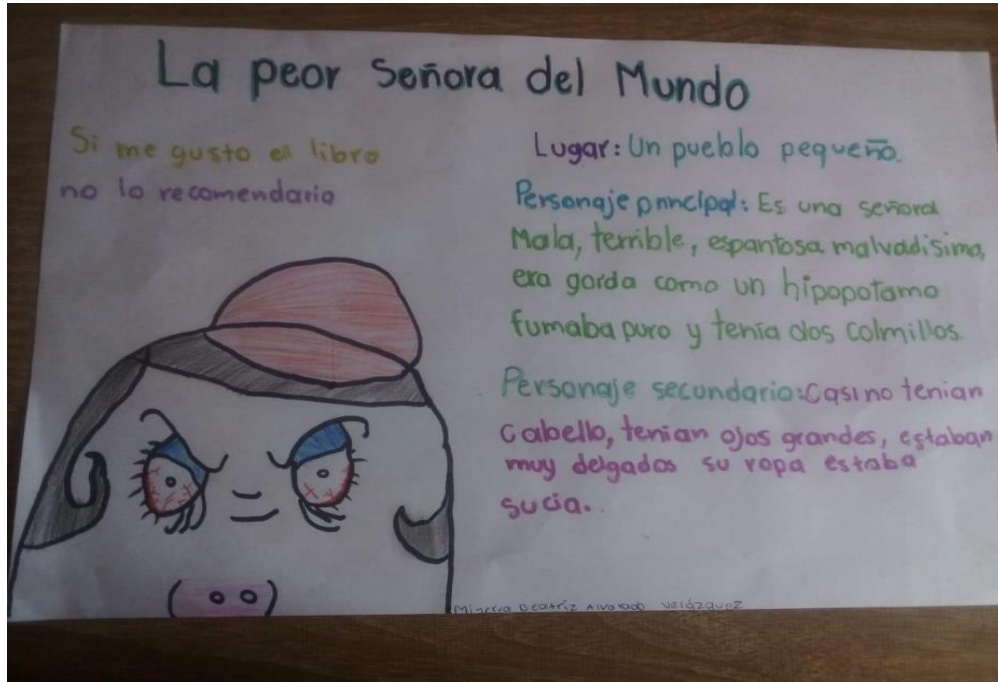 La peor Señora del Mundo
Si me gusto el libro
no lo recomendaria
Lugar: Un pueblo pequeño.
Personaje principal: Es una señora
Mala, terrible, espantosa malvadisima,
era gorda como un hipopotamo
fumaba puro y tenía dos colmillos.
Personaje secundario: Casi no tenian
cabello, tenian ojos grandes, estaban
muy delgados su ropa estaba
sucia..
Minerva Beatriz Alvarado Velázquez